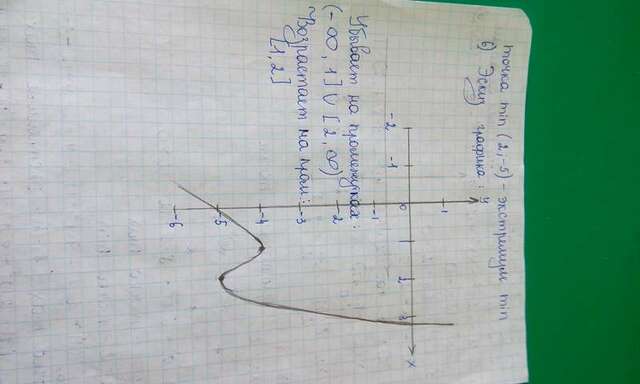 точка min (2,-5) - экстремум min
6) Эскиз графика:
y
1
0
-1
-2
-3
-4
-5
-6
-2
-1
1
2
3
x
Убывает на промежутках:
(-∞, 1] ∪ [2, ∞)
Возрастает на пром:
[1, 2]